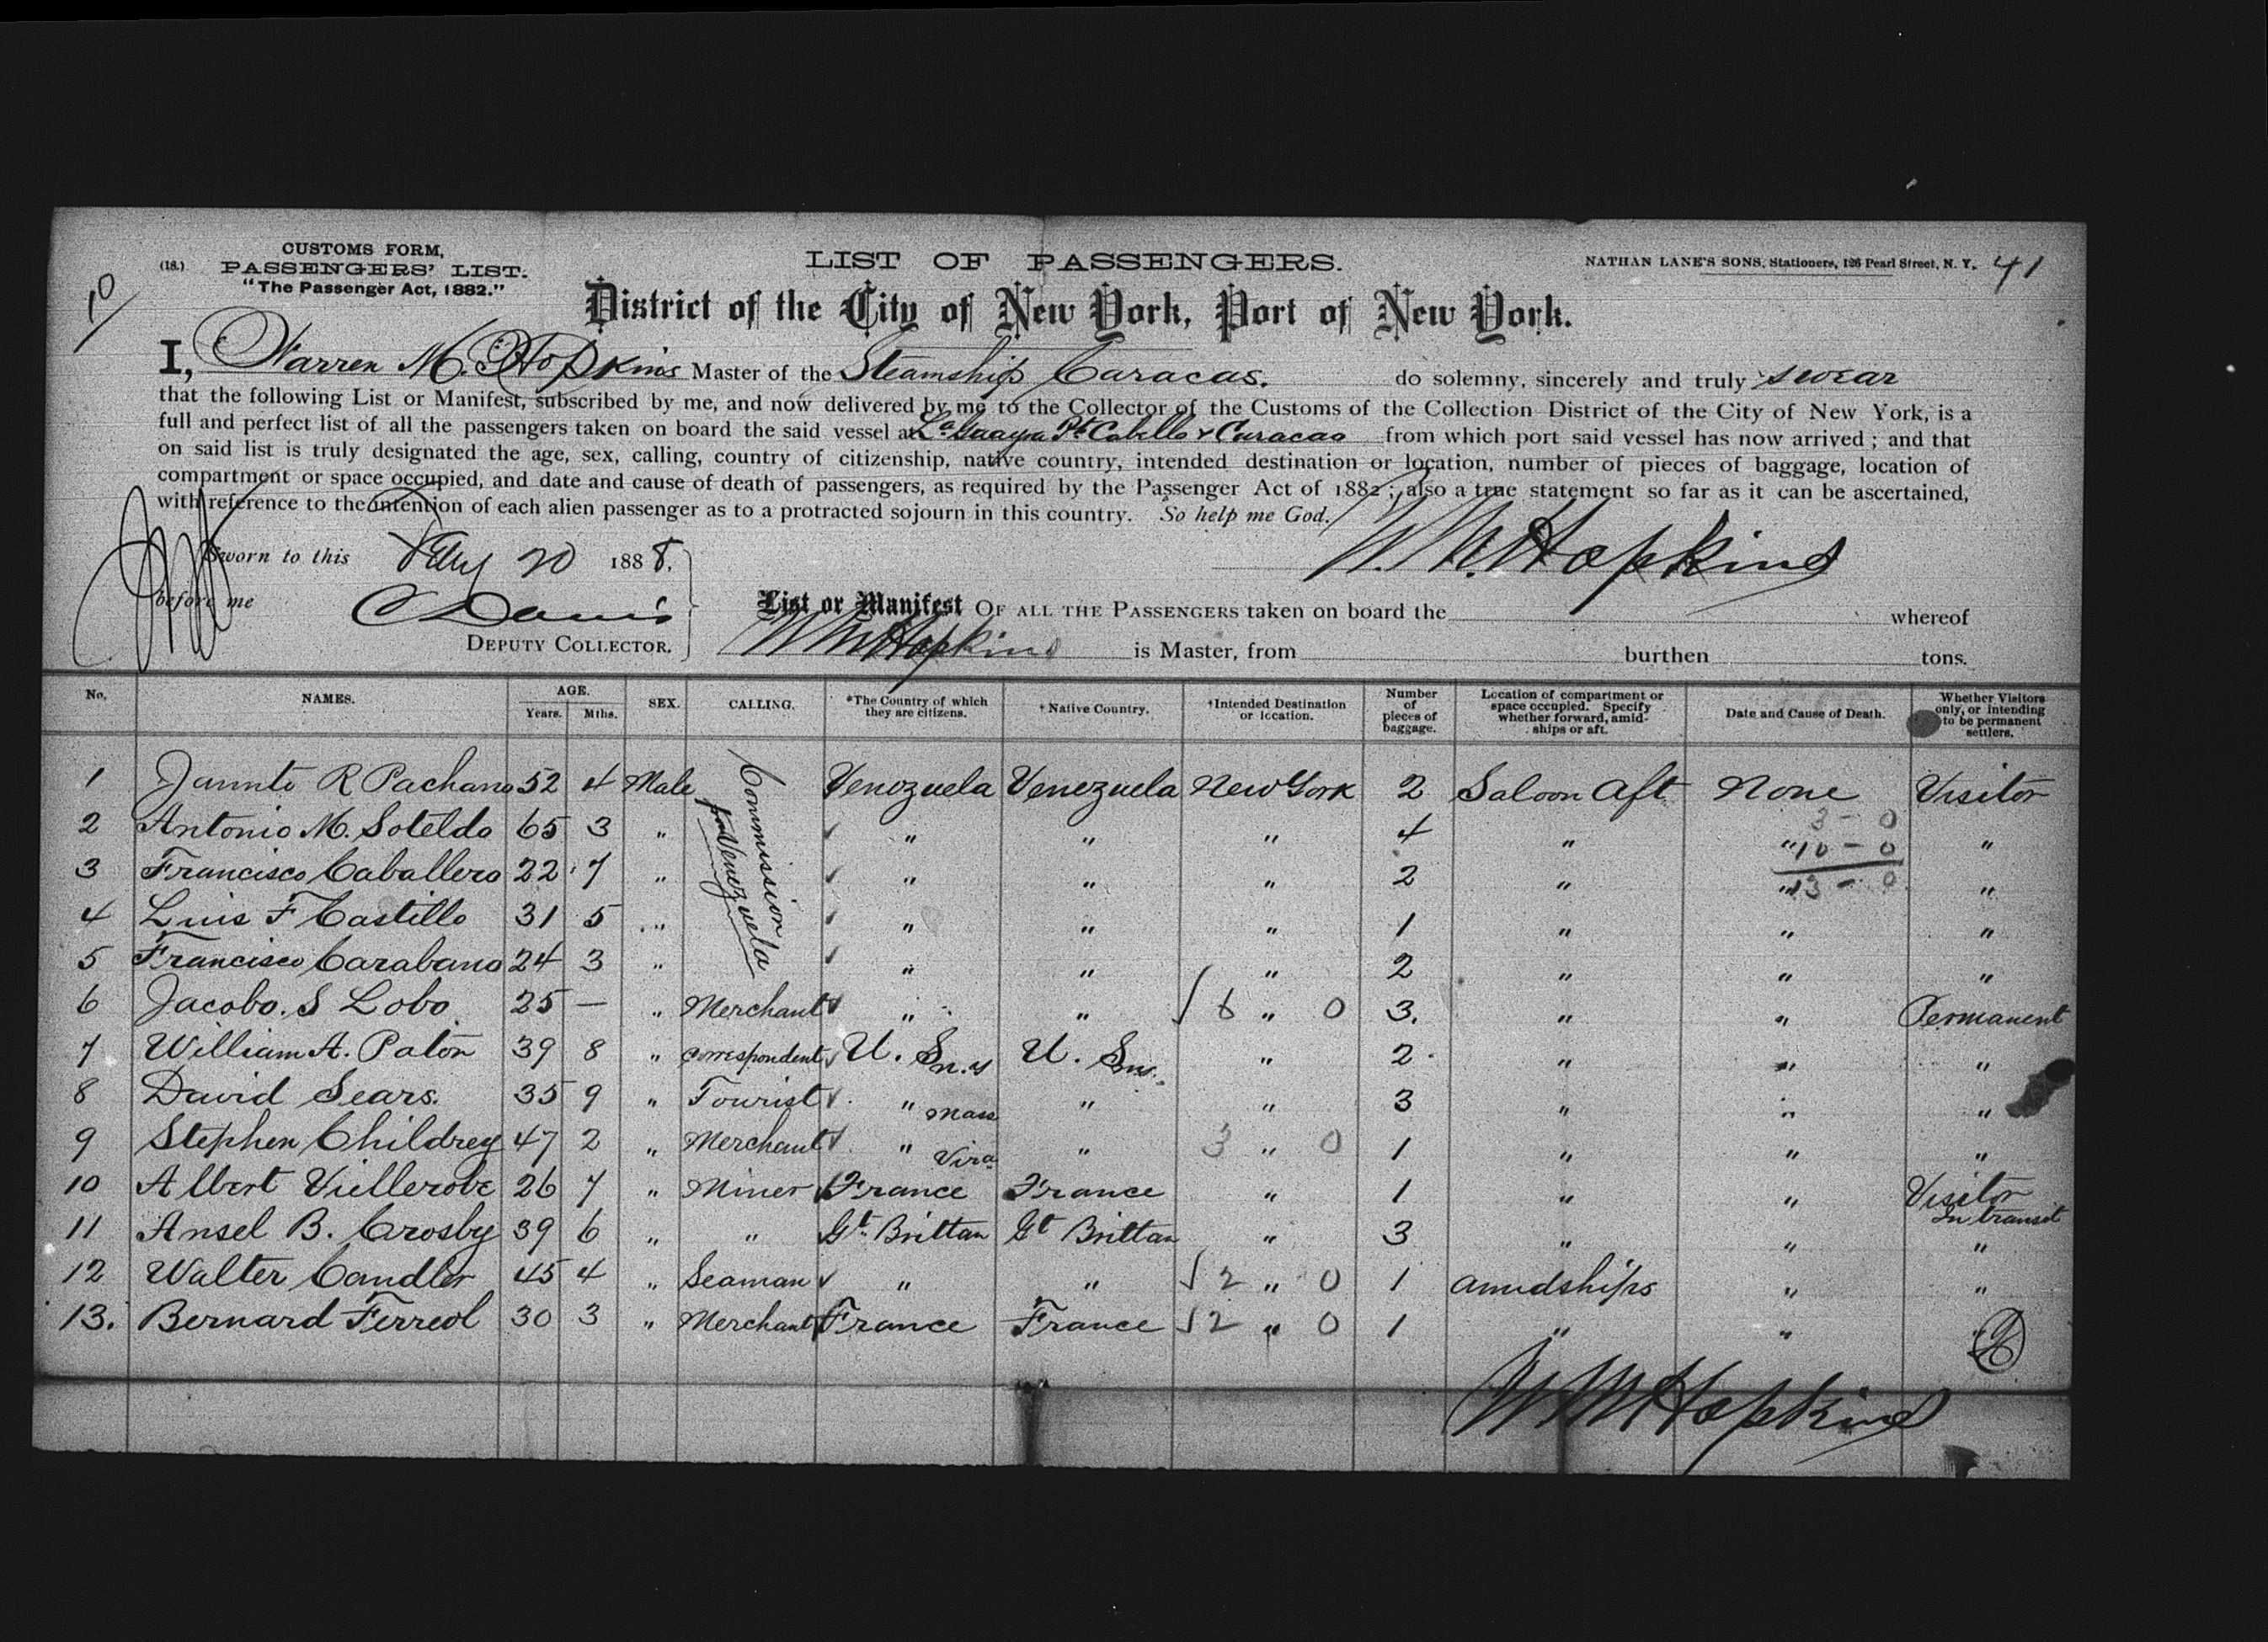 CUSTOMS FORM,
(18.) PASSENGERS' LIST.
"The Passenger Act, 1882."
10
LIST OF PASSENGERS.
NATHAN LANE'S SONS, Stationers, 126 Pearl Street, N. Y. 41
District of the City of New York, Port of New York.
I, Warren M. Hopkins Master of the Steamship Caracas. do solemny, sincerely and truly swear
that the following List or Manifest, subscribed by me, and now delivered by me to the Collector of the Customs of the Collection District of the City of New York, is a
full and perfect list of all the passengers taken on board the said vessel at La Guayra Pt Cabello & Curacao from which port said vessel has now arrived; and that
on said list is truly designated the age, sex, calling, country of citizenship, native country, intended destination or location, number of pieces of baggage, location of
compartment or space occupied, and date and cause of death of passengers, as required by the Passenger Act of 1882; also a true statement so far as it can be ascertained,
with reference to the intention of each alien passenger as to a protracted sojourn in this country. So help me God.
Sworn to this Feby 20 1888.
W. M. Hopkins
before me C Davis
DEPUTY COLLECTOR.
List or Manifest OF ALL THE PASSENGERS taken on board the whereof
W M Hopkins is Master, from burthen tons.
No. NAMES. AGE. Years. Mths. SEX. CALLING. *The Country of which they are citizens. †Native Country. †Intended Destination or location. Number of pieces of baggage. Location of compartment or space occupied. Specify whether forward, amidships or aft. Date and Cause of Death. Whether Visitors only, or intending to be permanent settlers.
Commission
from Venezuela
1 R Pachano 52 4 Male Venezuela Venezuela New York 2 Saloon Aft None Visitor
3 - 0
2 Antonio M. Soteldo 65 3 " " " " 4 " " "
10 - 0
3 Francisco Caballero 22 7 " " " " 2 " " "
13 - 0
4 Luis F Castillo 31 5 " " " " 1 " " "
5 Francisco Carabano 24 3 " " " " 2 " " "
6 Jacobo. S Lobo 25 — " Merchant " " 6 " 0 3. " " Permanent
7 William A. Paton 39 8 " Correspondent U. S N.Y U. S N.Y. " 2 " " "
8 David Sears. 35 9 " Tourist " Mass " " 3 " " "
9 Stephen Childrey 47 2 " Merchant " Vira " 3 " 0 1 " " "
10 Albert Viellerobe 26 7 " Miner France France " 1 " " Visitor
In transit
11 Ansel B. Crosby 39 6 " " Gt Brittan Gt Brittan " 3 " " "
12 Walter Candler 45 4 " Seaman " " 2 " 0 1 amidships " "
13. Bernard Ferreol 30 3 " Merchant France France 2 " 0 1 " " "
W M Hopkins